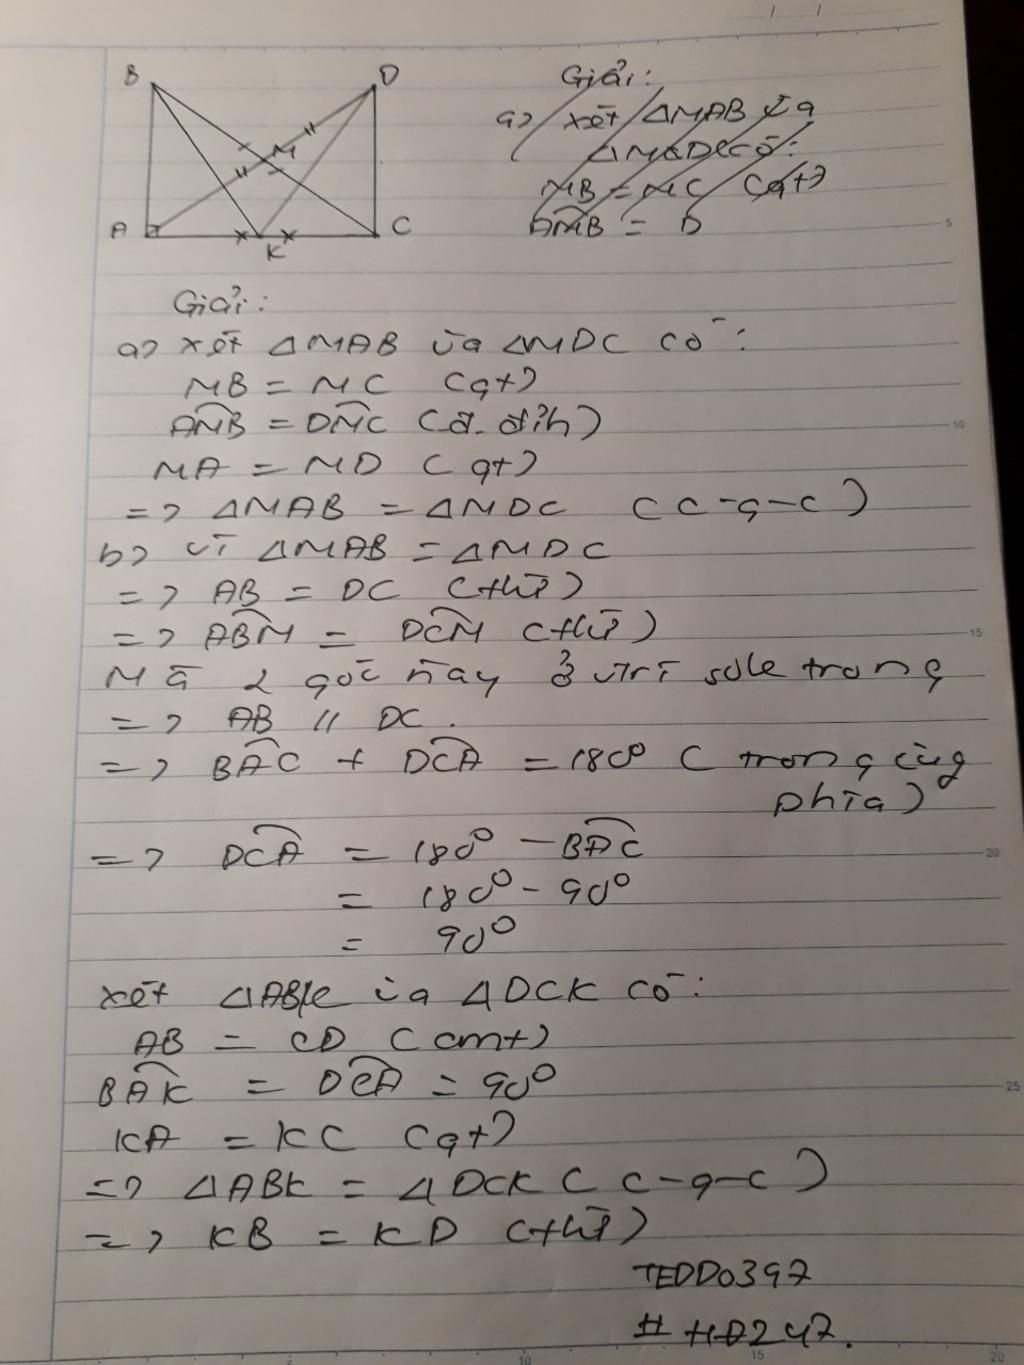 B
D
M
A
C
K
Giải:
a) xét ΔMAB và
ΔMDC có:
MB = MC (gt)
AMB = D
Giải:
a) xét ΔMAB và ΔMDC có:
MB = MC (gt)
AMB = DMC (đ.đỉh)
MA = MD (gt)
=> ΔMAB = ΔMDC (c-g-c)
b) vì ΔMAB = ΔMDC
=> AB = DC
=> ABM = DCM
Mà 2 góc này ở vị trí sole trong
=> AB // DC.
=> BAC + DCA = 180° (trong cùg
phía)
=> DCA = 180° - BAC
= 180° - 90°
= 90°
xét ΔABK và ΔDCK có:
AB = CD (cmt)
BAK = DCA = 90°
KA = KC (gt)
=> ΔABK = ΔDCK (c-g-c)
=> KB = KD
TEDD0397
# HD247.
5
10
15
20
25
5
10
15
20